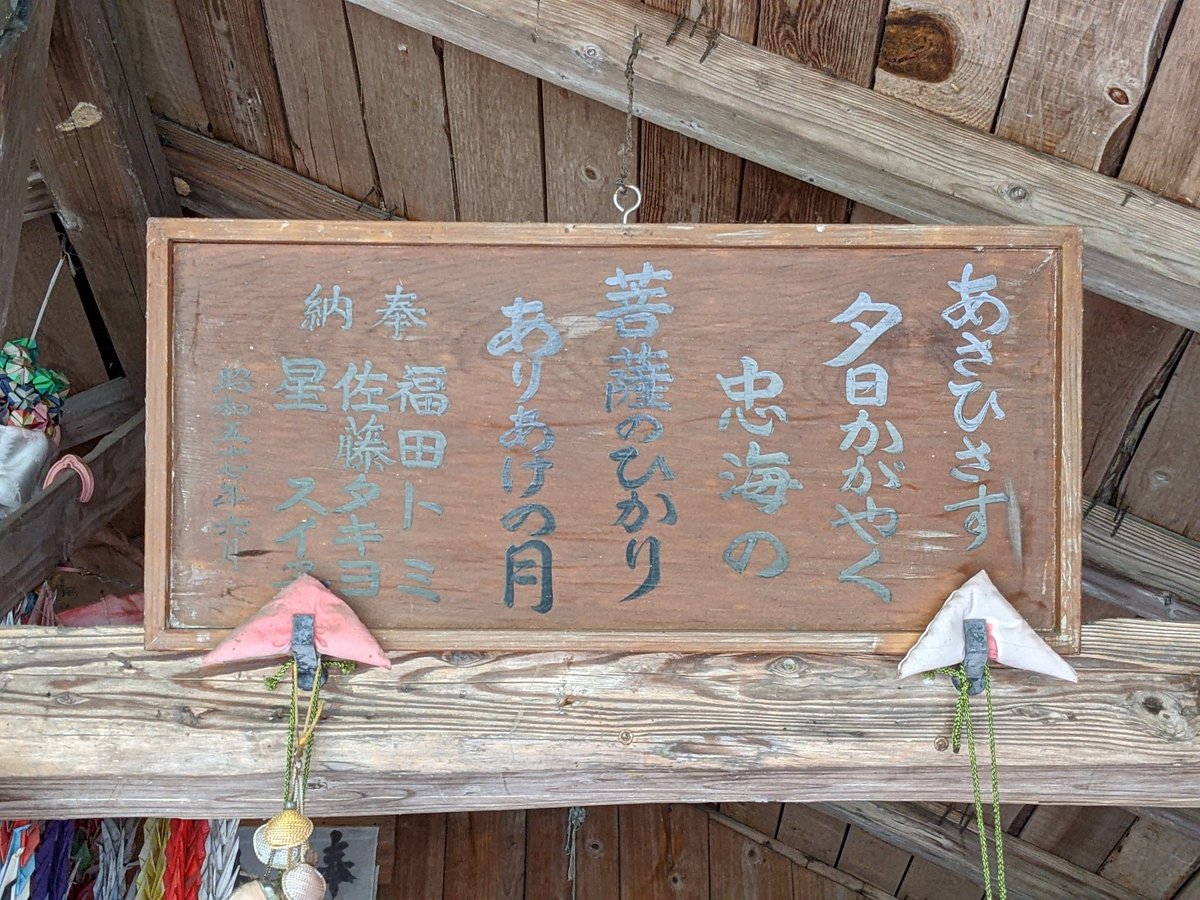 あさひさす
夕日かがやく
忠海の
菩薩のひかり
ありあけの月
奉納
福田トミ
佐藤タキヨ
星
昭和五十七年六月
奉